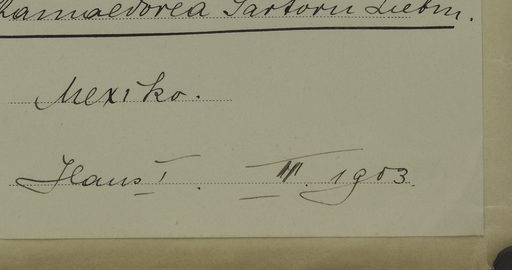 Chamaedorea Sartorii Liebm.
Mexiko.
Haus I. III. 1903.